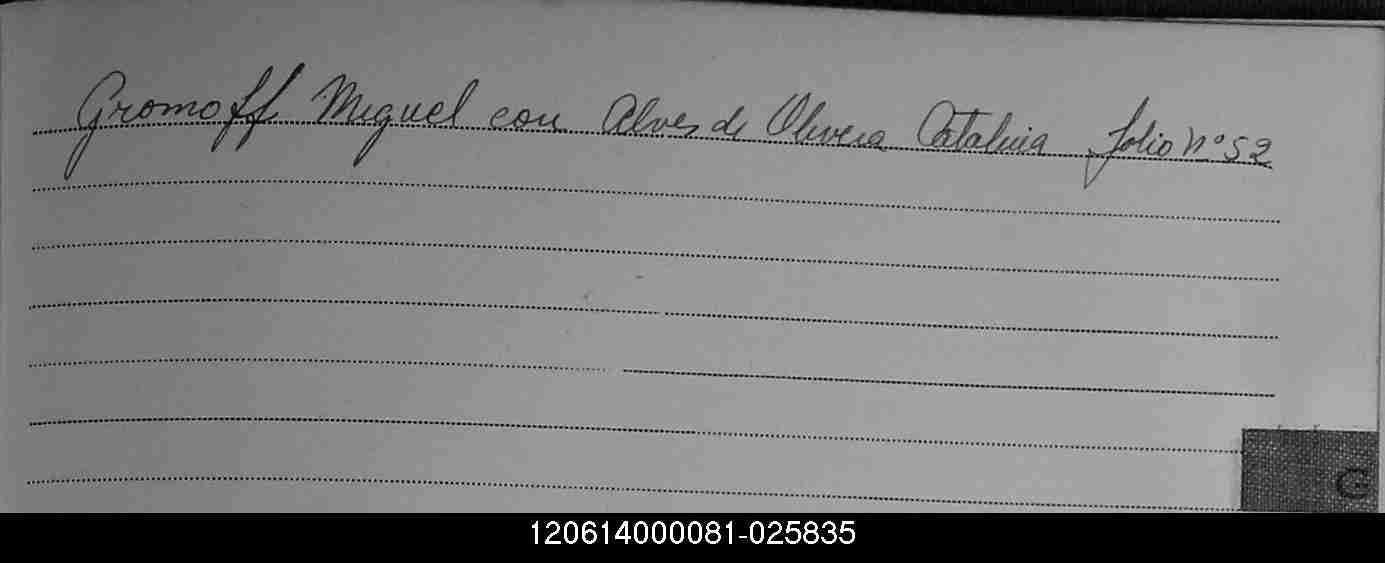 Gromoff Miguel con Alves de Olivera Catalina folio nº 52
G
120614000081-025835